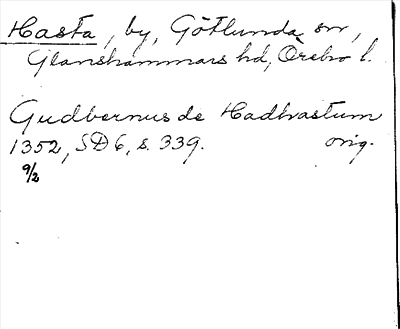 Hasta, by, Götlunda sn,
Glanshammars hd, Örebro l.
Gudbernus de Hadhvastum
1352, SD 6, s. 339. orig.
9/2